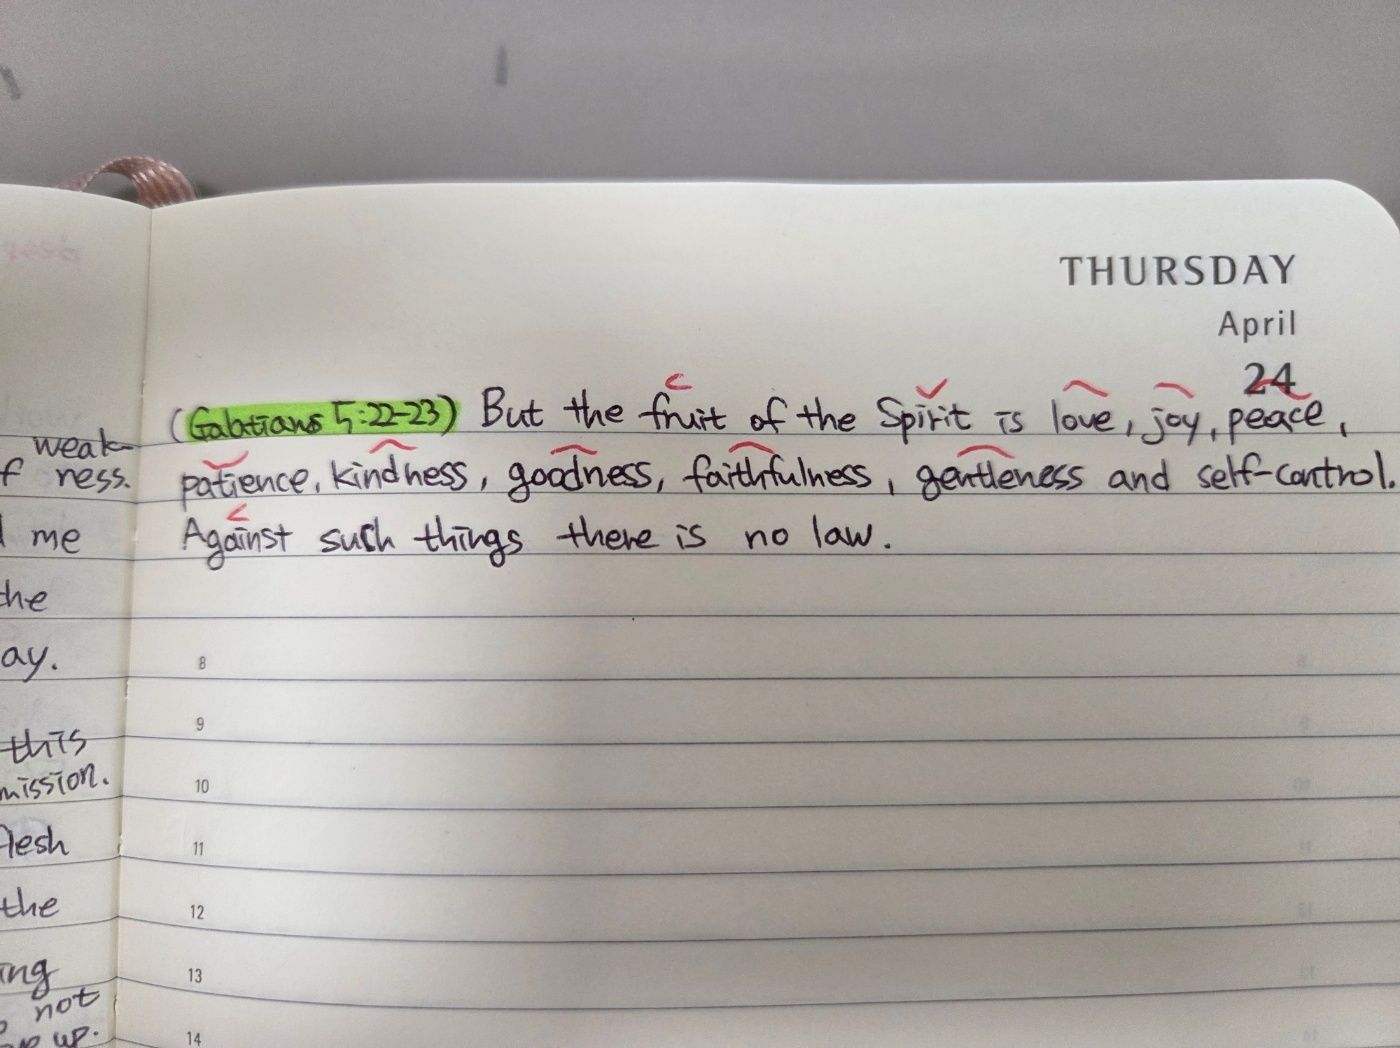 THURSDAY
April
24
(Galatians 5:22-23) But the fruit of the Spirit is love, joy, peace,
patience, kindness, goodness, faithfulness, gentleness and self-control.
Against such things there is no law.
8
9
10
11
12
13
14
weak-
ness.
me
the
ay.
this
mission.
flesh
the
ing
not
up.